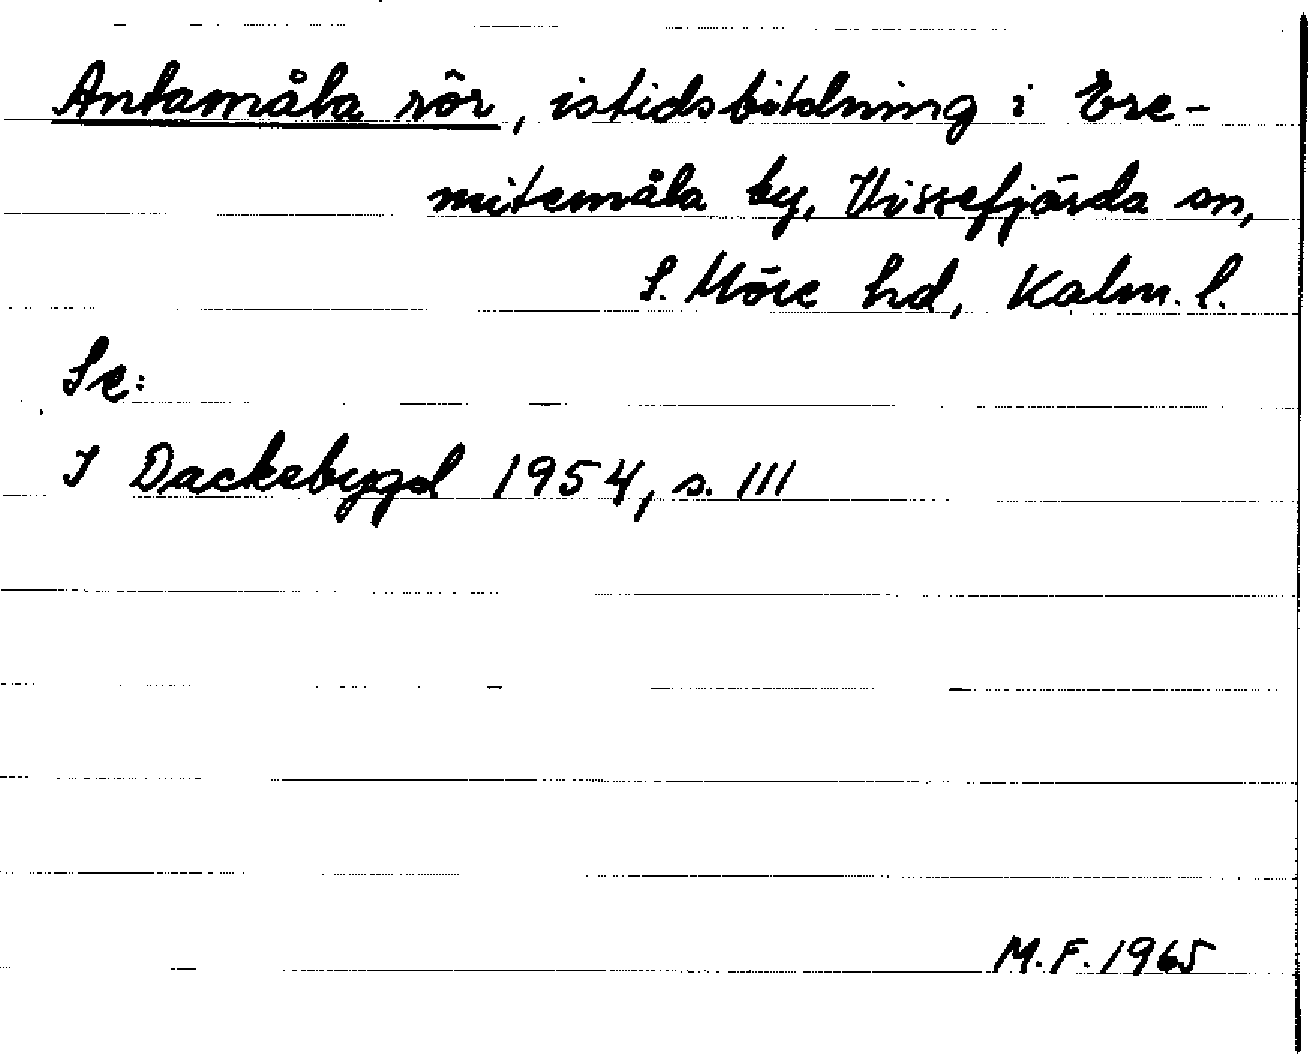 Antamåla rör, istidsbildning i Ere-
mitemåla by, Vissefjärda sn,
S. Möre hd, Kalm. l.
Se:
I Dackebygd 1954, s. 111
M.F. 1965